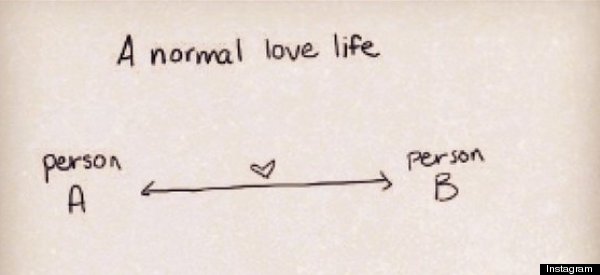 A normal love life
person
A
person
B
Instagram